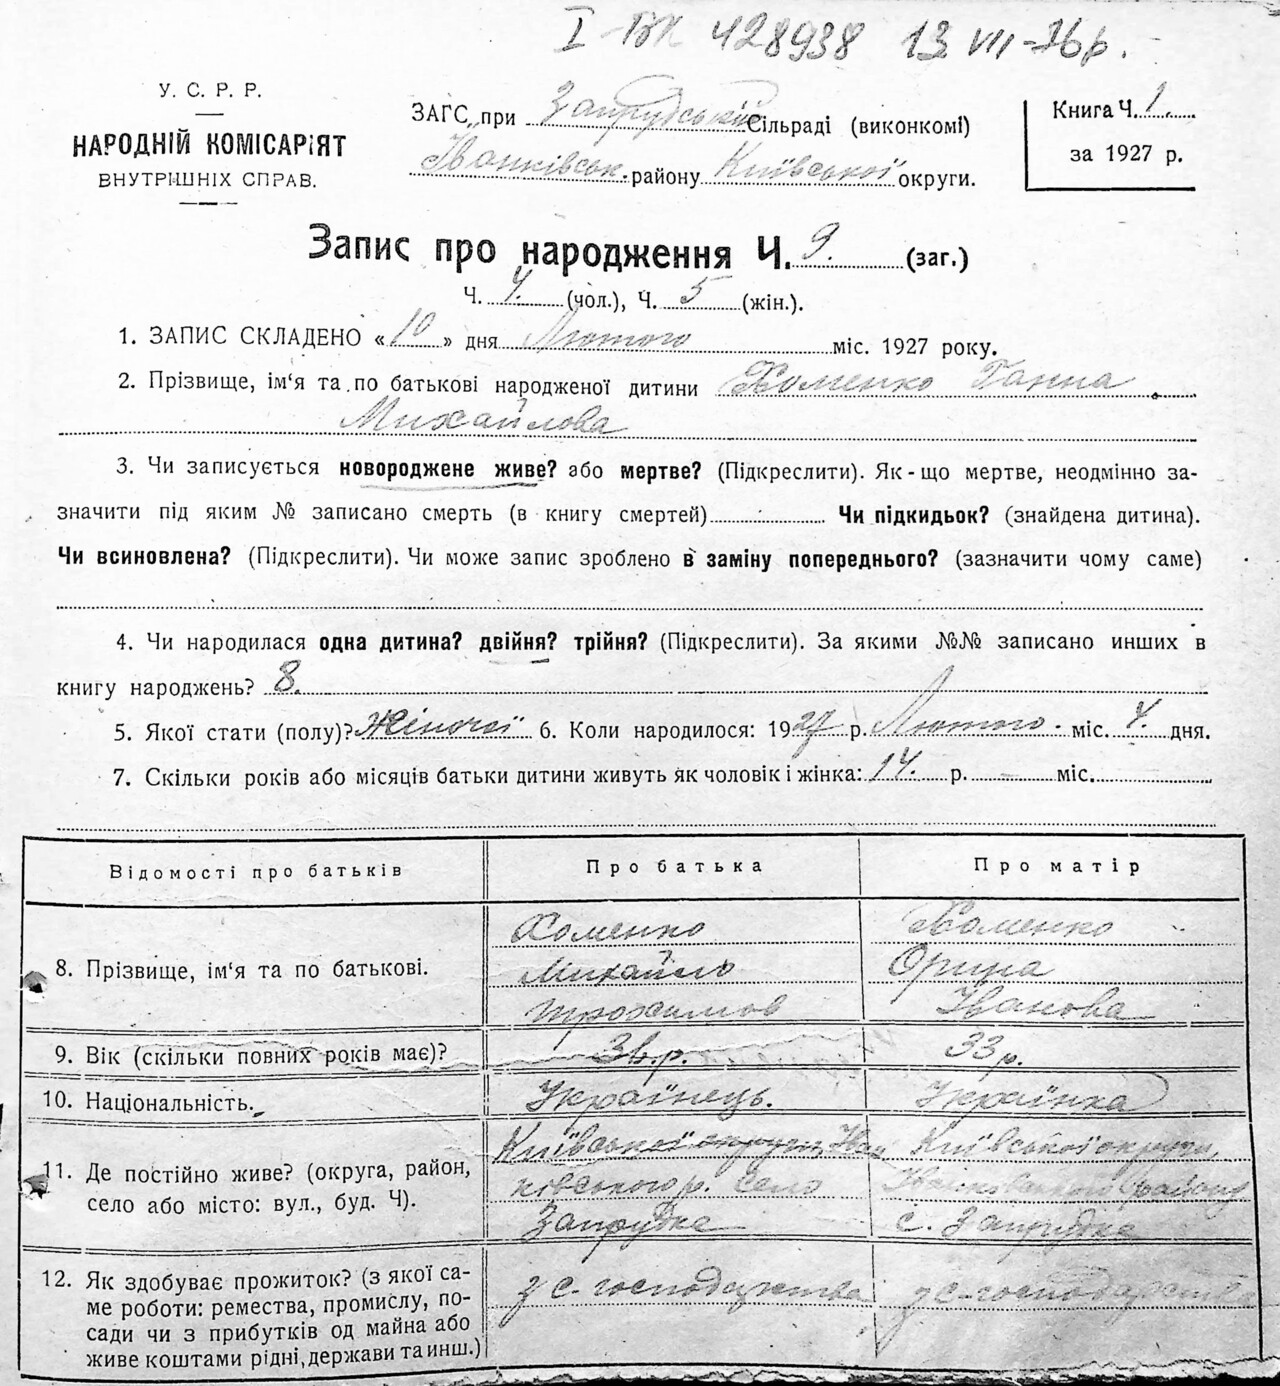 І-БК 428938 13 VII-76р.
У. С. Р. Р.
НАРОДНІЙ КОМІСАРІЯТ
ВНУТРІШНІХ СПРАВ.
ЗАГС при Запрудській Сільраді (виконкомі)
Іванківськ. району Київської округи.
Книга Ч. 1.
за 1927 р.
Запис про народження Ч. 9. (заг.)
Ч. 4. (чол.), Ч. 5 (жін.).
1. ЗАПИС СКЛАДЕНО «10» дня Лютого міс. 1927 року.
2. Прізвище, ім'я та по батькові народженої дитини Хоменко Ганна
Михайлова
3. Чи записується новороджене живе? або мертве? (Підкреслити). Як-що мертве, неодмінно за-
значити під яким № записано смерть (в книгу смертей) Чи підкидьок? (знайдена дитина).
Чи всиновлена? (Підкреслити). Чи може запис зроблено в заміну попереднього? (зазначити чому саме)
4. Чи народилася одна дитина? двійня? трійня? (Підкреслити). За якими №№ записано инших в
книгу народжень? 8.
5. Якої стати (полу)? Жіночої 6. Коли народилося: 1927 р. Лютого міс. 4. дня.
7. Скільки років або місяців батьки дитини живуть як чоловік і жінка: 14. р. — міс.
Відомості про батьків Про батька Про матір
8. Прізвище, ім'я та по батькові.
Хоменко
Михайло
Трохимов
Хоменко
Орина
Іванова
9. Вік (скільки повних років має)? р. 33 р.
10. Національність. Українець. Українка
11. Де постійно живе? (округа, район,
село або місто: вул., буд. Ч).
Київської округи, Іван
ківського р. село
Запрудка
Київської округи
Іванківського району
с. Запрудка
12. Як здобуває прожиток? (з якої са-
ме роботи: ремества, промислу, по-
сади чи з прибутків од майна або
живе коштами рідні, держави та инш.)
з с.-господарства
з с.-господарства